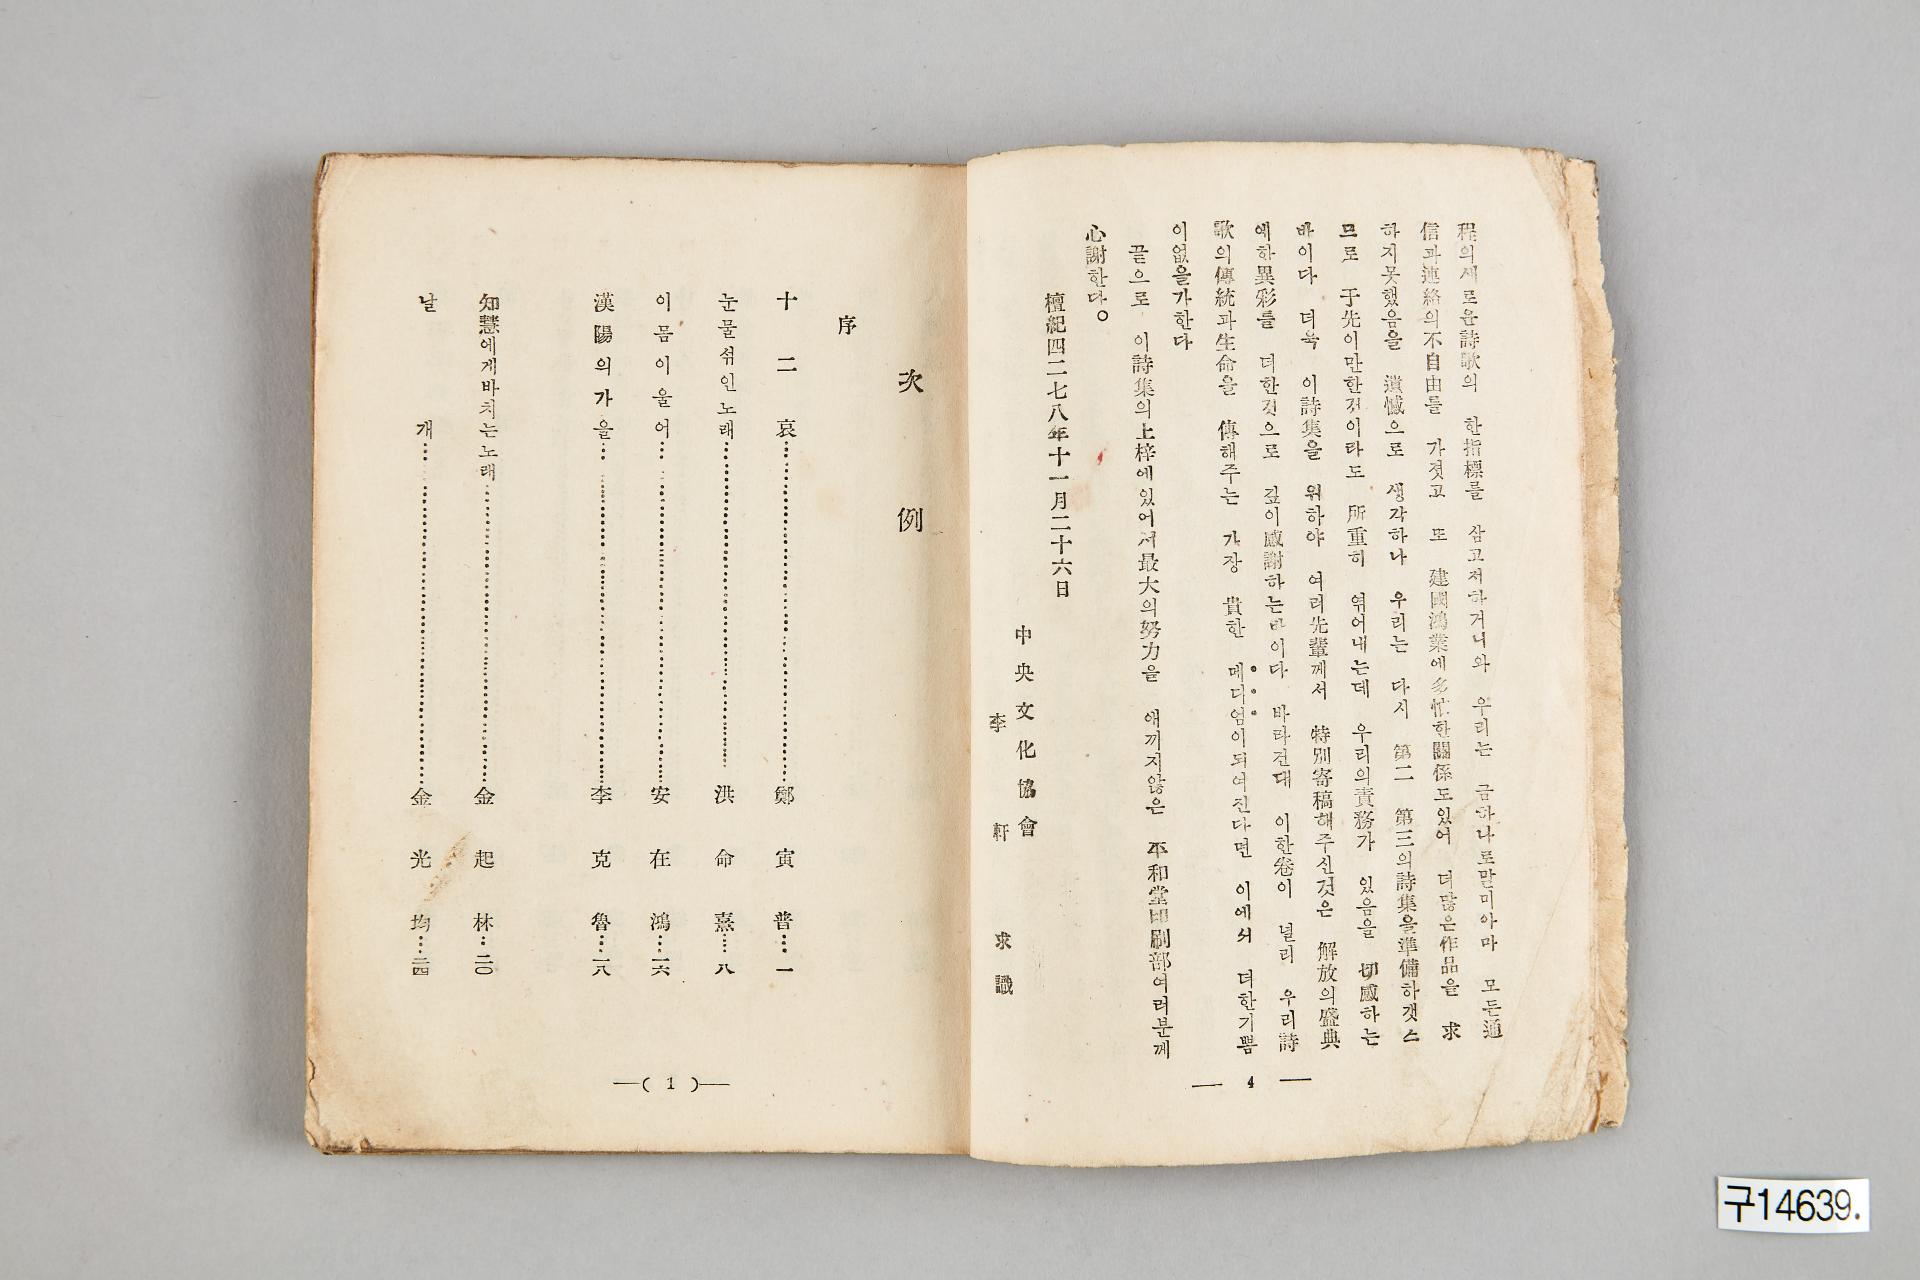 程의새로운詩歌의 한指標를 삼고저하거니와 우리는 금하나로말미아마 모든通
信과連絡의不自由를 가젓고 또 建國鴻業에多忙한關係도있어 더많은作品을 求
하지못했음을 遺憾으로 생각하나 우리는 다시 第二 第三의詩集을準備하갯스
므로 于先이만한것이라도 所重히 엮어내는데 우리의責務가 있음을 切感하는
바이다 더욱 이詩集을 위하야 여러先輩께서 特別寄稿해주신것은 解放의盛典
에하異彩를 더한것으로 깊이感謝하는바이다 바라건대 이한卷이 널리 우리詩
歌의傳統과生命을 傳해주는 가장 貴한 메디엄이되여진다면 이에서 더한기쁨
이없을가한다
끝으로 이詩集의上梓에있어서最大의努力을 애끼지않은 平和堂印刷部여러분게
心謝한다。
檀紀四二七八年十一月二十六日
中央文化協會
李軒求識
— 4 —
次例
序
十二哀……鄭寅普……一
눈물섞인노래……洪命熹……八
이몸이울어……安在鴻……一六
漢陽의가을……李克魯……一八
知慧에게바치는노래……金起林……二〇
날개……金光均……二四
—( 1 )—
구14639.